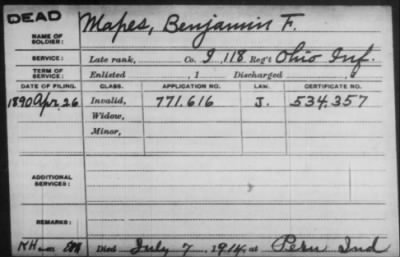 DEAD
NAME OF SOLDIER: Mapes, Benjamin F.
SERVICE: Late rank, Co. I, 118 Reg't Ohio Inf.
TERM OF SERVICE: Enlisted , 1 Discharged , 1
DATE OF FILING. CLASS. APPLICATION NO. LAW. CERTIFICATE NO.
1890 Apr. 26 Invalid, 771.616 J. 534.357
Widow,
Minor,
ADDITIONAL SERVICES:
REMARKS:
Died July 7, 1914, at Peru Ind